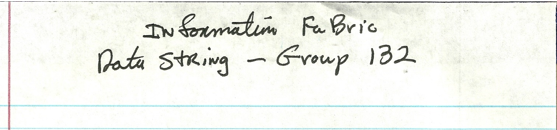 Information FaBric
Data String - Group 132